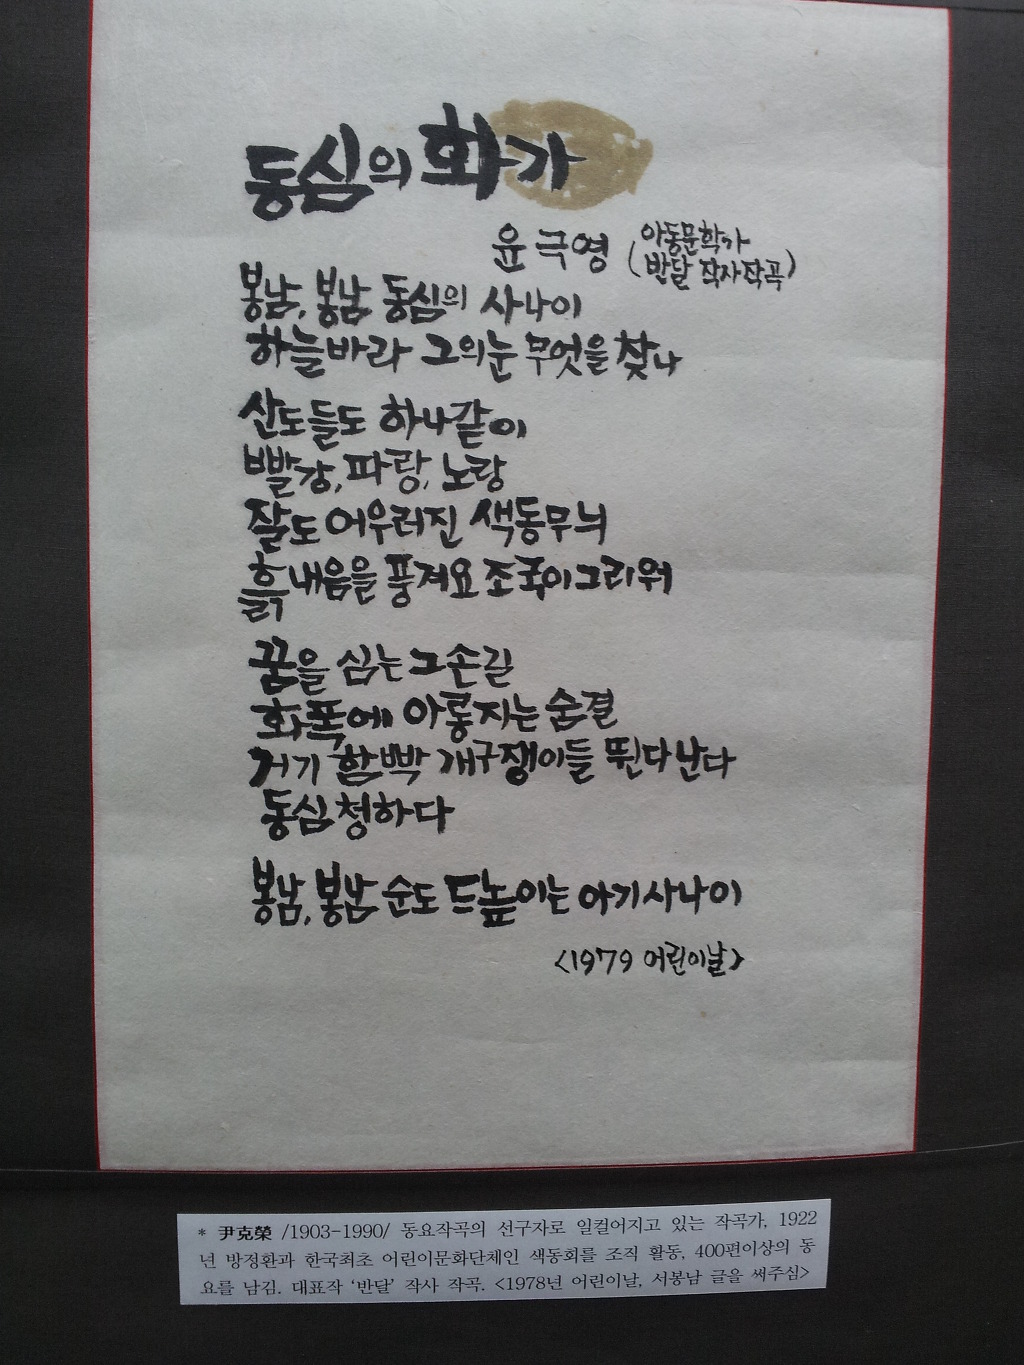 동심의 화가
윤극영 (아동문학가
반달 작사작곡)
봉남, 봉남 동심의 사나이
하늘바라 그의눈 무엇을 찾나
산도들도 하나같이
빨강, 파랑, 노랑
잘도 어우러진 색동무늬
흙내음을 풍겨요 조국이그리워
꿈을 심는 그손길
화폭에 아롱지는 숨결
거기 함빡 개구쟁이들 뛴다난다
동심청하다
봉남, 봉남 순도 드높이는 아기사나이
<1979 어린이날>
* 尹克榮 /1903-1990/ 동요작곡의 선구자로 일컬어지고 있는 작곡가, 1922
년 방정환과 한국최초 어린이문화단체인 색동회를 조직 활동, 400편이상의 동
요를 남김. 대표작 '반달' 작사 작곡. <1978년 어린이날, 서봉남 글을 써주심>